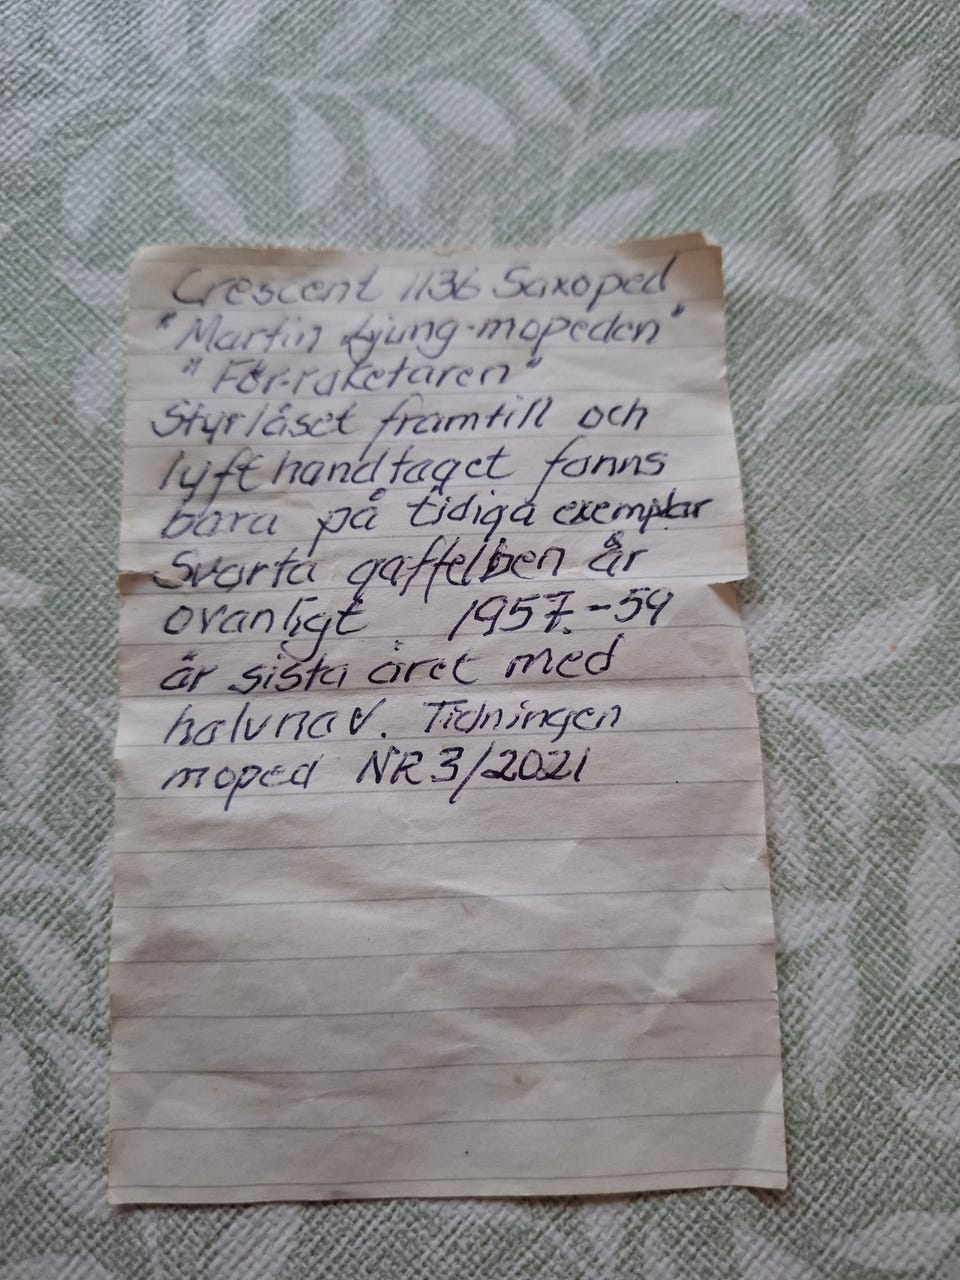 Crescent 1136 Saxoped
"Martin Ljung-mopeden"
"För-raketaren"
Styrlåset framtill och
lyfthandtaget fanns
bara på tidiga exemplar
Svarta gaffelben är
ovanligt 1957.-59
är sista året med
halvnav. Tidningen
moped NR3/2021